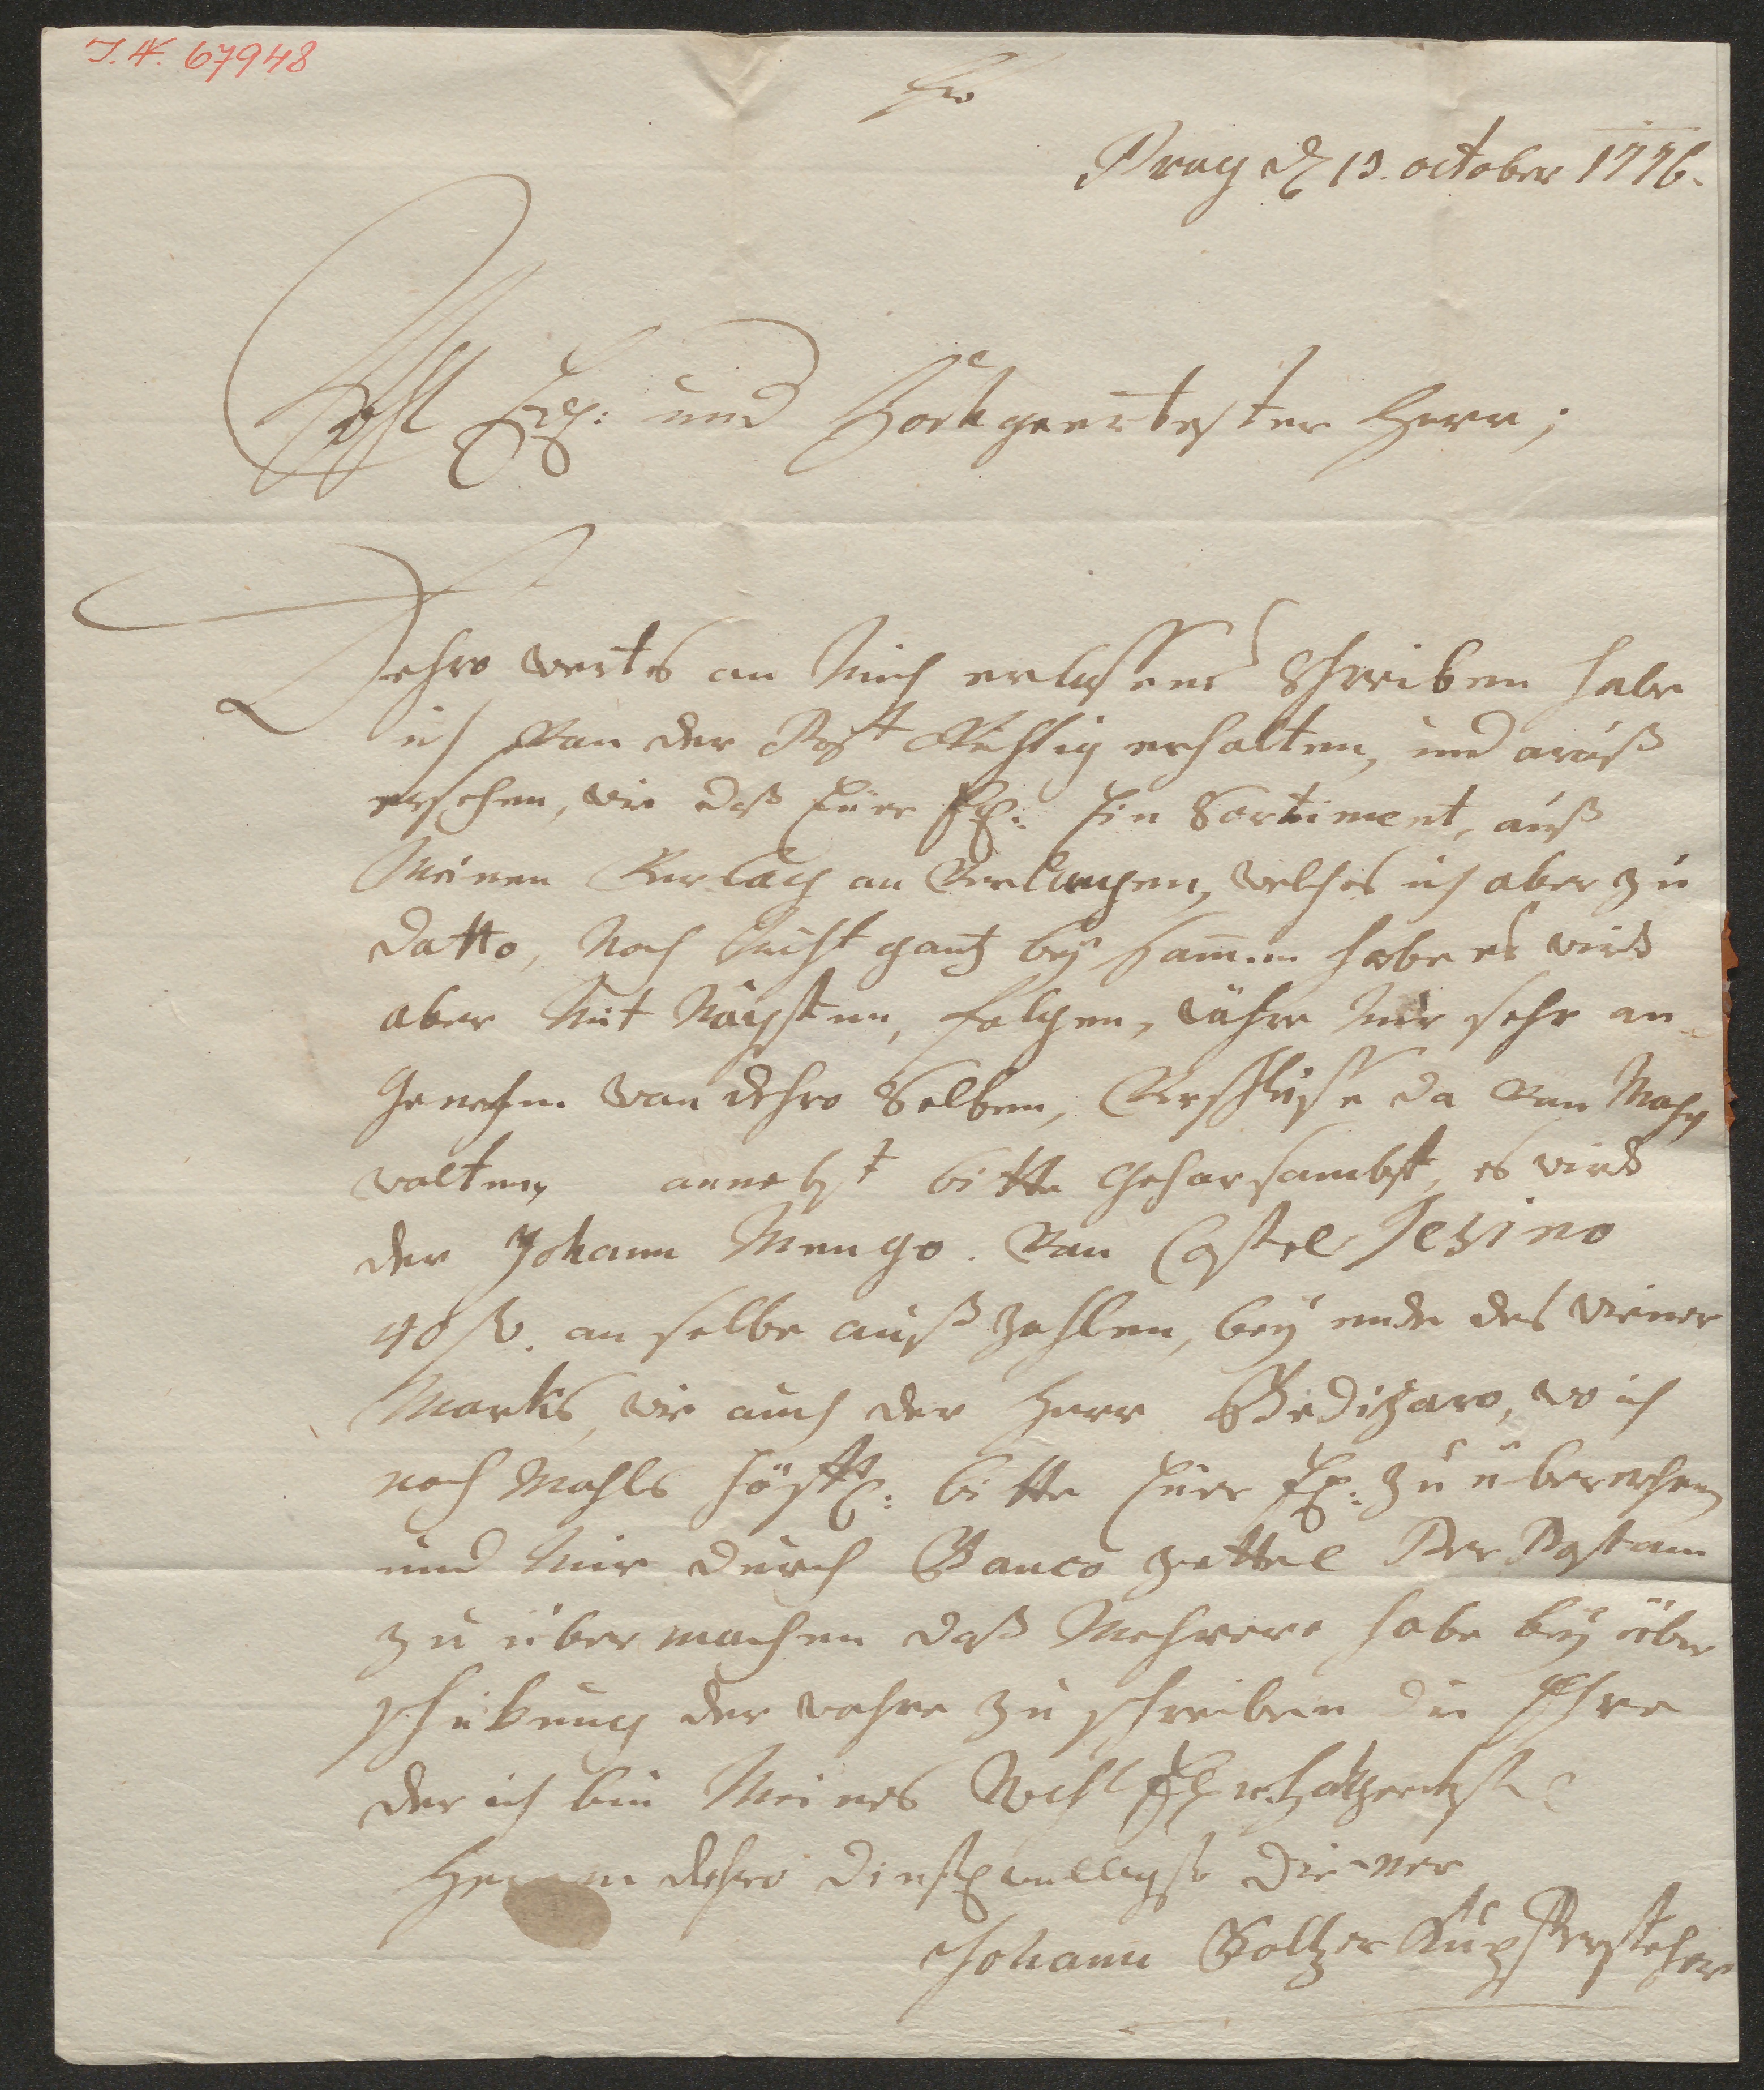 I.N. 67948
Prag d 13. october 1776.
Wohl Edl: und Hochgeertester Herr;
Dehro wertes an Mich erlassenes Schreiben habe
ich Von der Post Richtig erhalten, und arauß
ersehen, wie daß Euer Edl: Ein Sortiment, auß
Meinen Verlag an Verlangen, welches ich aber zu
datto, Noch Nicht gantz bey sammen habe es wird
aber Mit Nägsten, folgen, währe Mir sehr an
Genehm von dehro Selben, da Von
walten, annebst bitte Gehorsambst, es wird
der Johann Mengo. Von Castel Tezino
40 f. an selbe auß zahlen, bey ende des wiener
Markts, wie auch der Herr Bedizaro, wo ich
noch Mahls höfl: bitte Euer Edl: zu übernehmen
und Mir durch Banco zettel Per Postam
zu über machen daß Mehrere habe bey über
schikung der wahre zu schreiben die Ehre
der ich bin Meines Wohl Edl u. hochgeertst
Herren dehro dienstwilligste diener
Johann Baltzer Kupferstecher